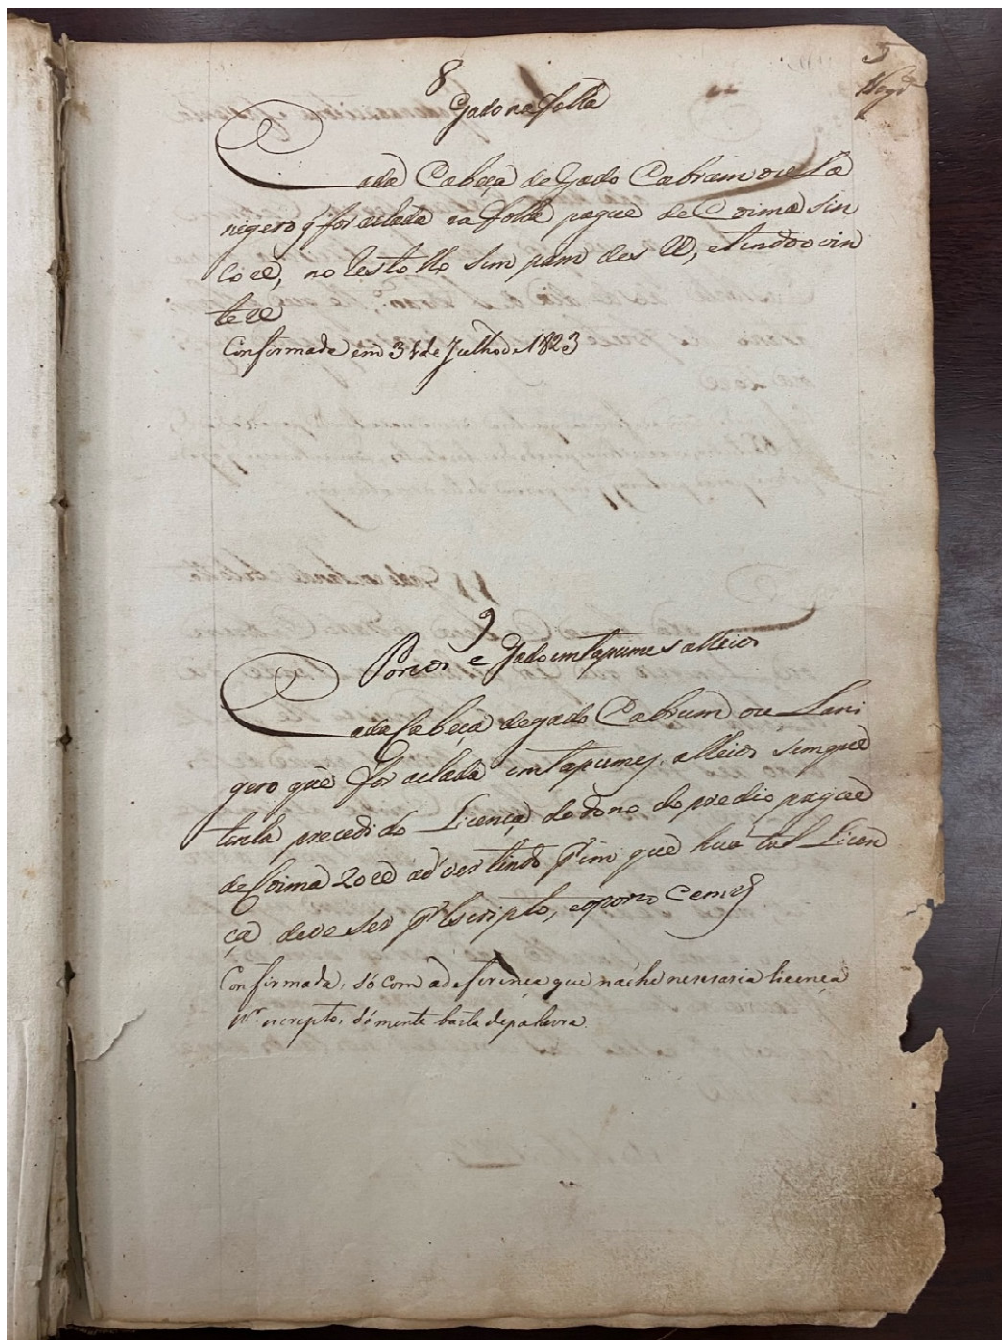 5
8
Gado na folha
Cada Cabeça de Gado Cabrum ou La
nigero q for achada na folha pague de Coima sin
co rs, no restolho sim pam des rs, e tindoo vin
te rs
Confirmada em 31 de Julho de 1823
9
Porcos e Gado em tapumes alheios
Cada Cabeça de gado Cabrum ou Lani
gero que for achada em tapumes, alheios sem que
tinha precedido Licença do dono do predio pague
de Coima 20 rs advertindo pm que hua tal Licen
ça deve ser pr Escripto, e porco Cem rs
Confirmada, só com a deferença que não he nesesaria licença
pr escripto, sómente basta de palavra.